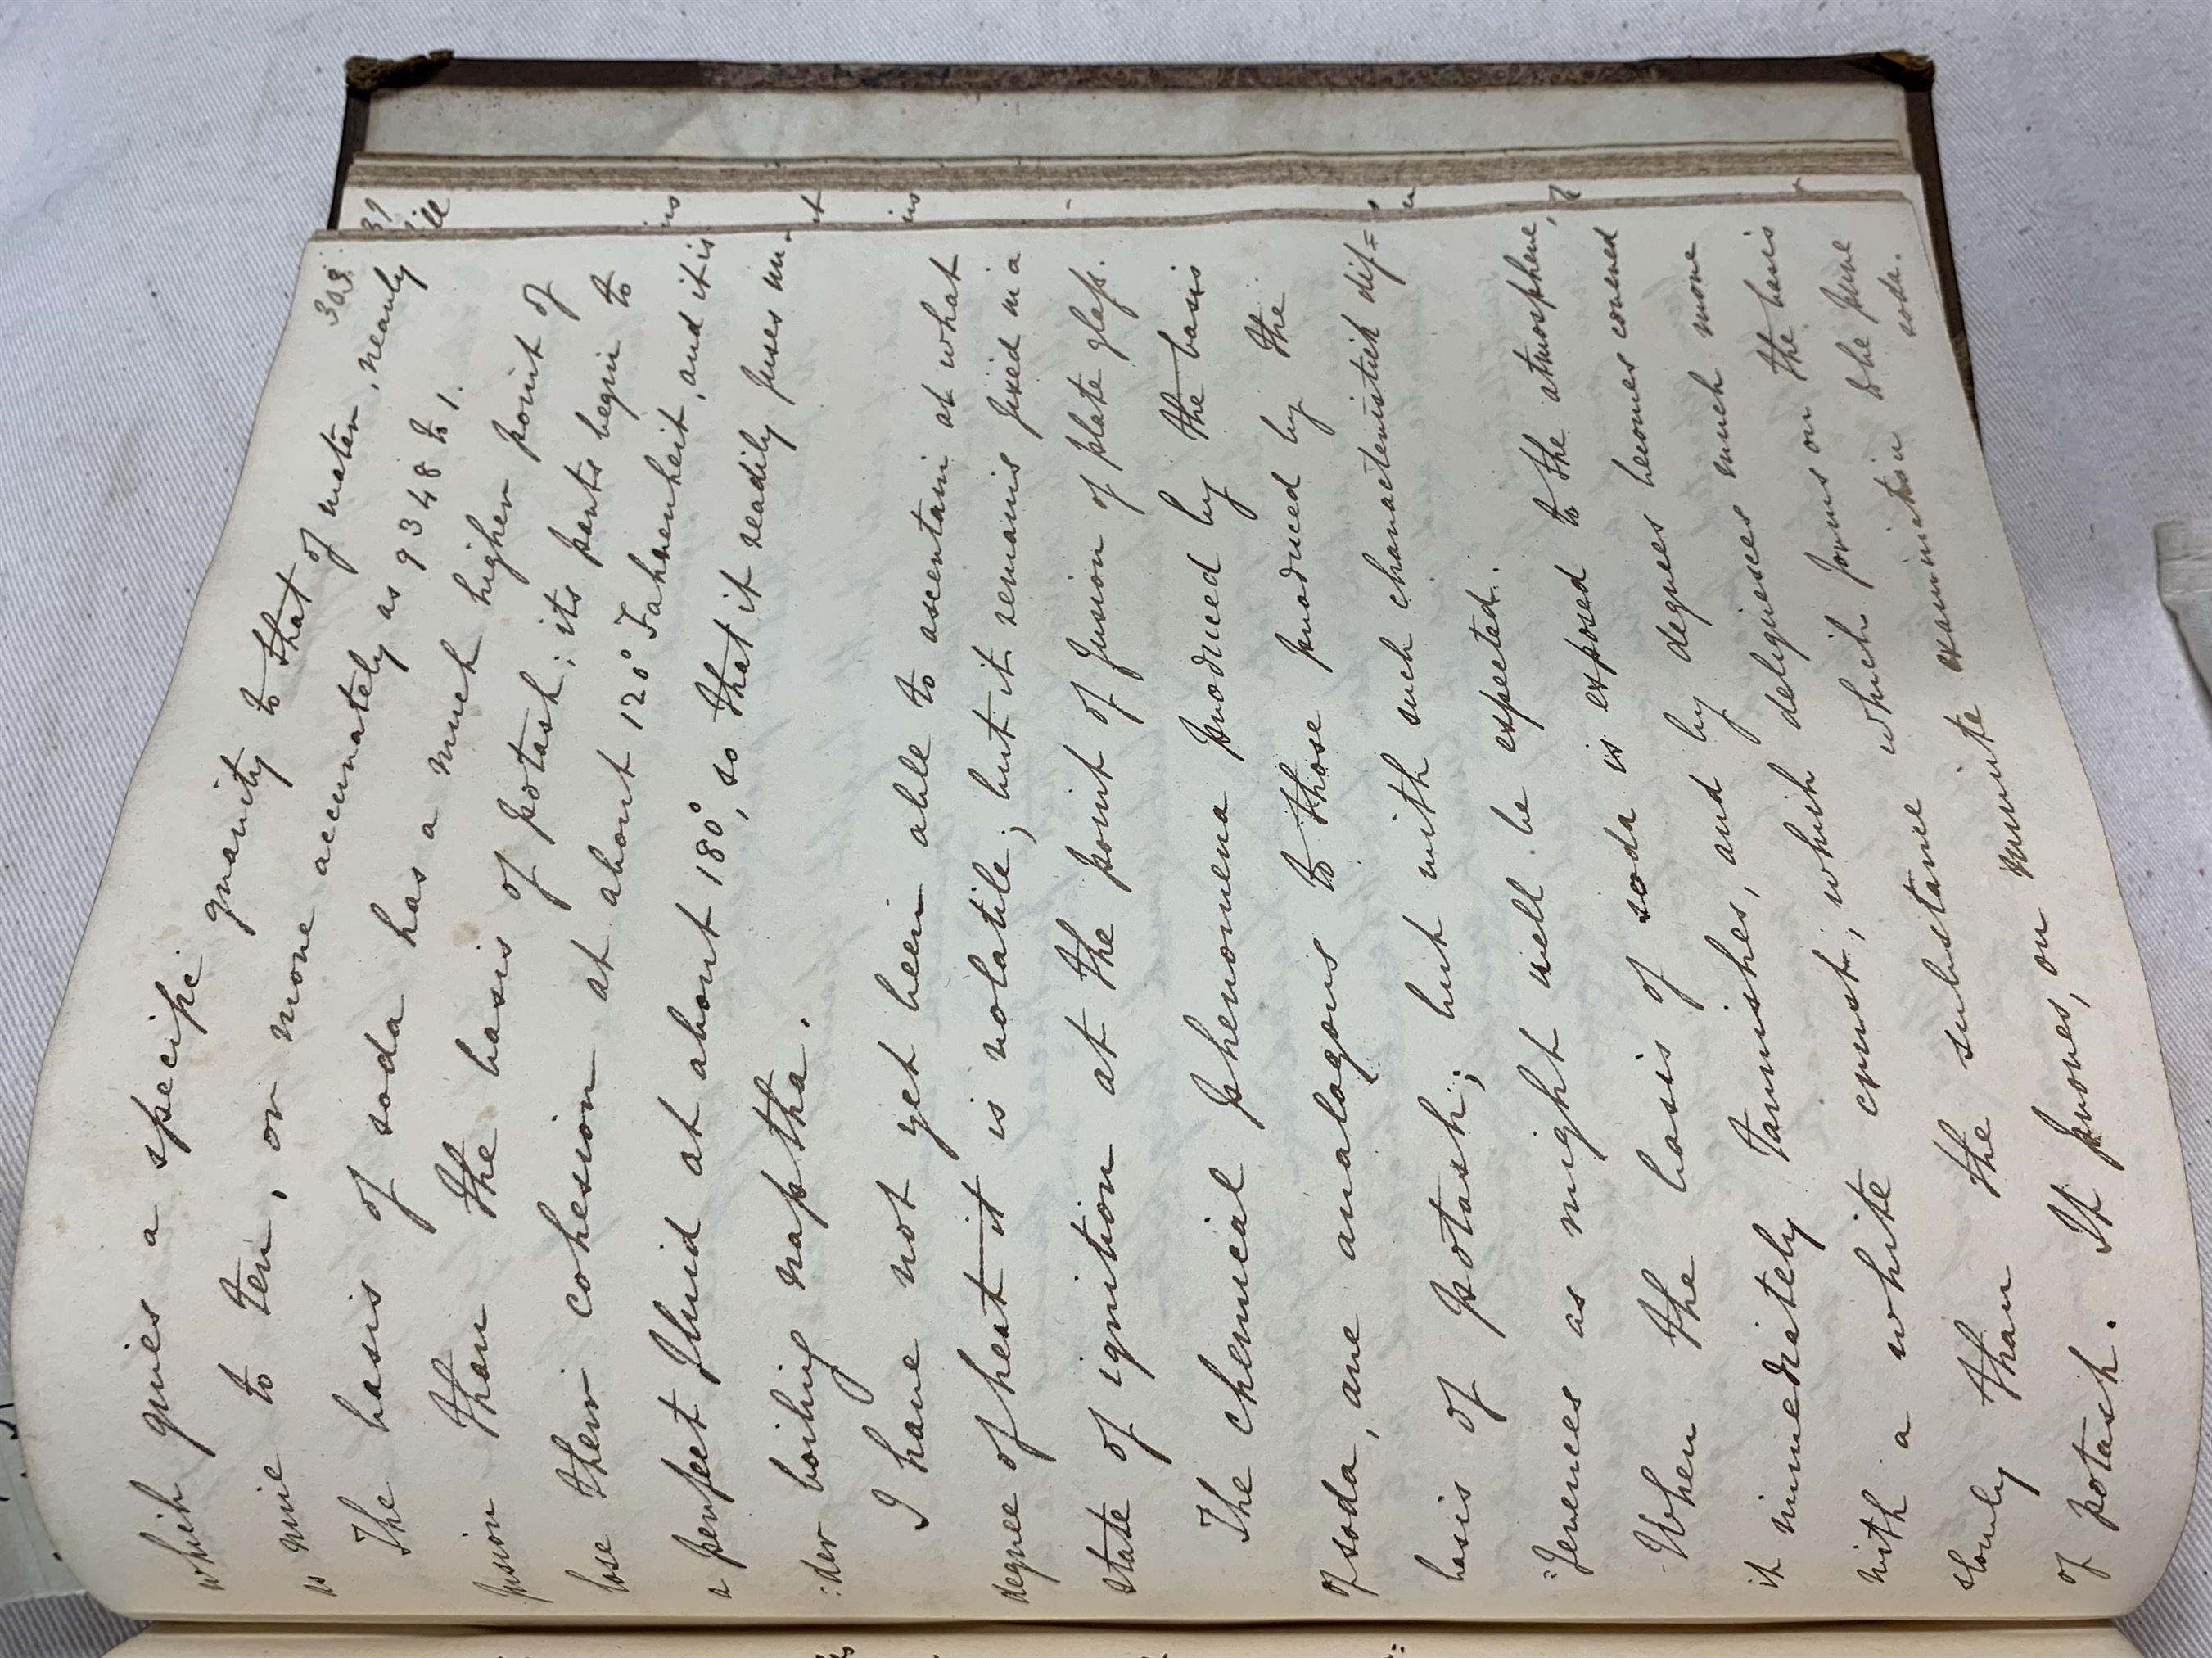 303.
which gives a specific gravity to that of water, nearly
as nine to ten, or more accurately as 9348 to 1.
The basis of soda has a much higher point of
fusion than the basis of potash; its parts begin to
lose their cohesion at about 120° Fahrenheit, and it is
a perfect fluid at about 180°, so that it readily fuses un-
:der boiling naptha.
I have not yet been able to ascertain at what
degree of heat it is volatile; but it remains fixed in a
state of ignition at the point of fusion of plate glass.
The chemical phenomena produced by the basis
of soda, are analogous to those produced by the
basis of potash; but with such characteristick dif=
=ferences as might well be expected.
When the basis of soda is exposed to the atmosphere,
it immediately tarnishes, and by degrees becomes covered
with a white crust, which deliquesces much more
slowly than the substance which forms on the basis
of potash. It proves, on minute examination to be pure
soda.